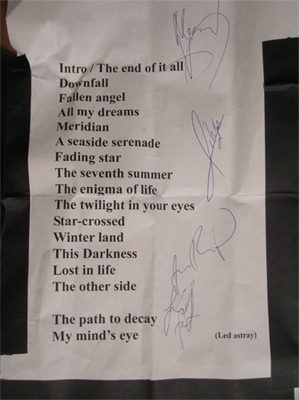 Intro / The end of it all
Downfall
Fallen angel
All my dreams
Meridian
A seaside serenade
Fading star
The seventh summer
The enigma of life
The twilight in your eyes
Star-crossed
Winter land
This Darkness
Lost in life
The other side
The path to decay
My mind's eye (Led astray)